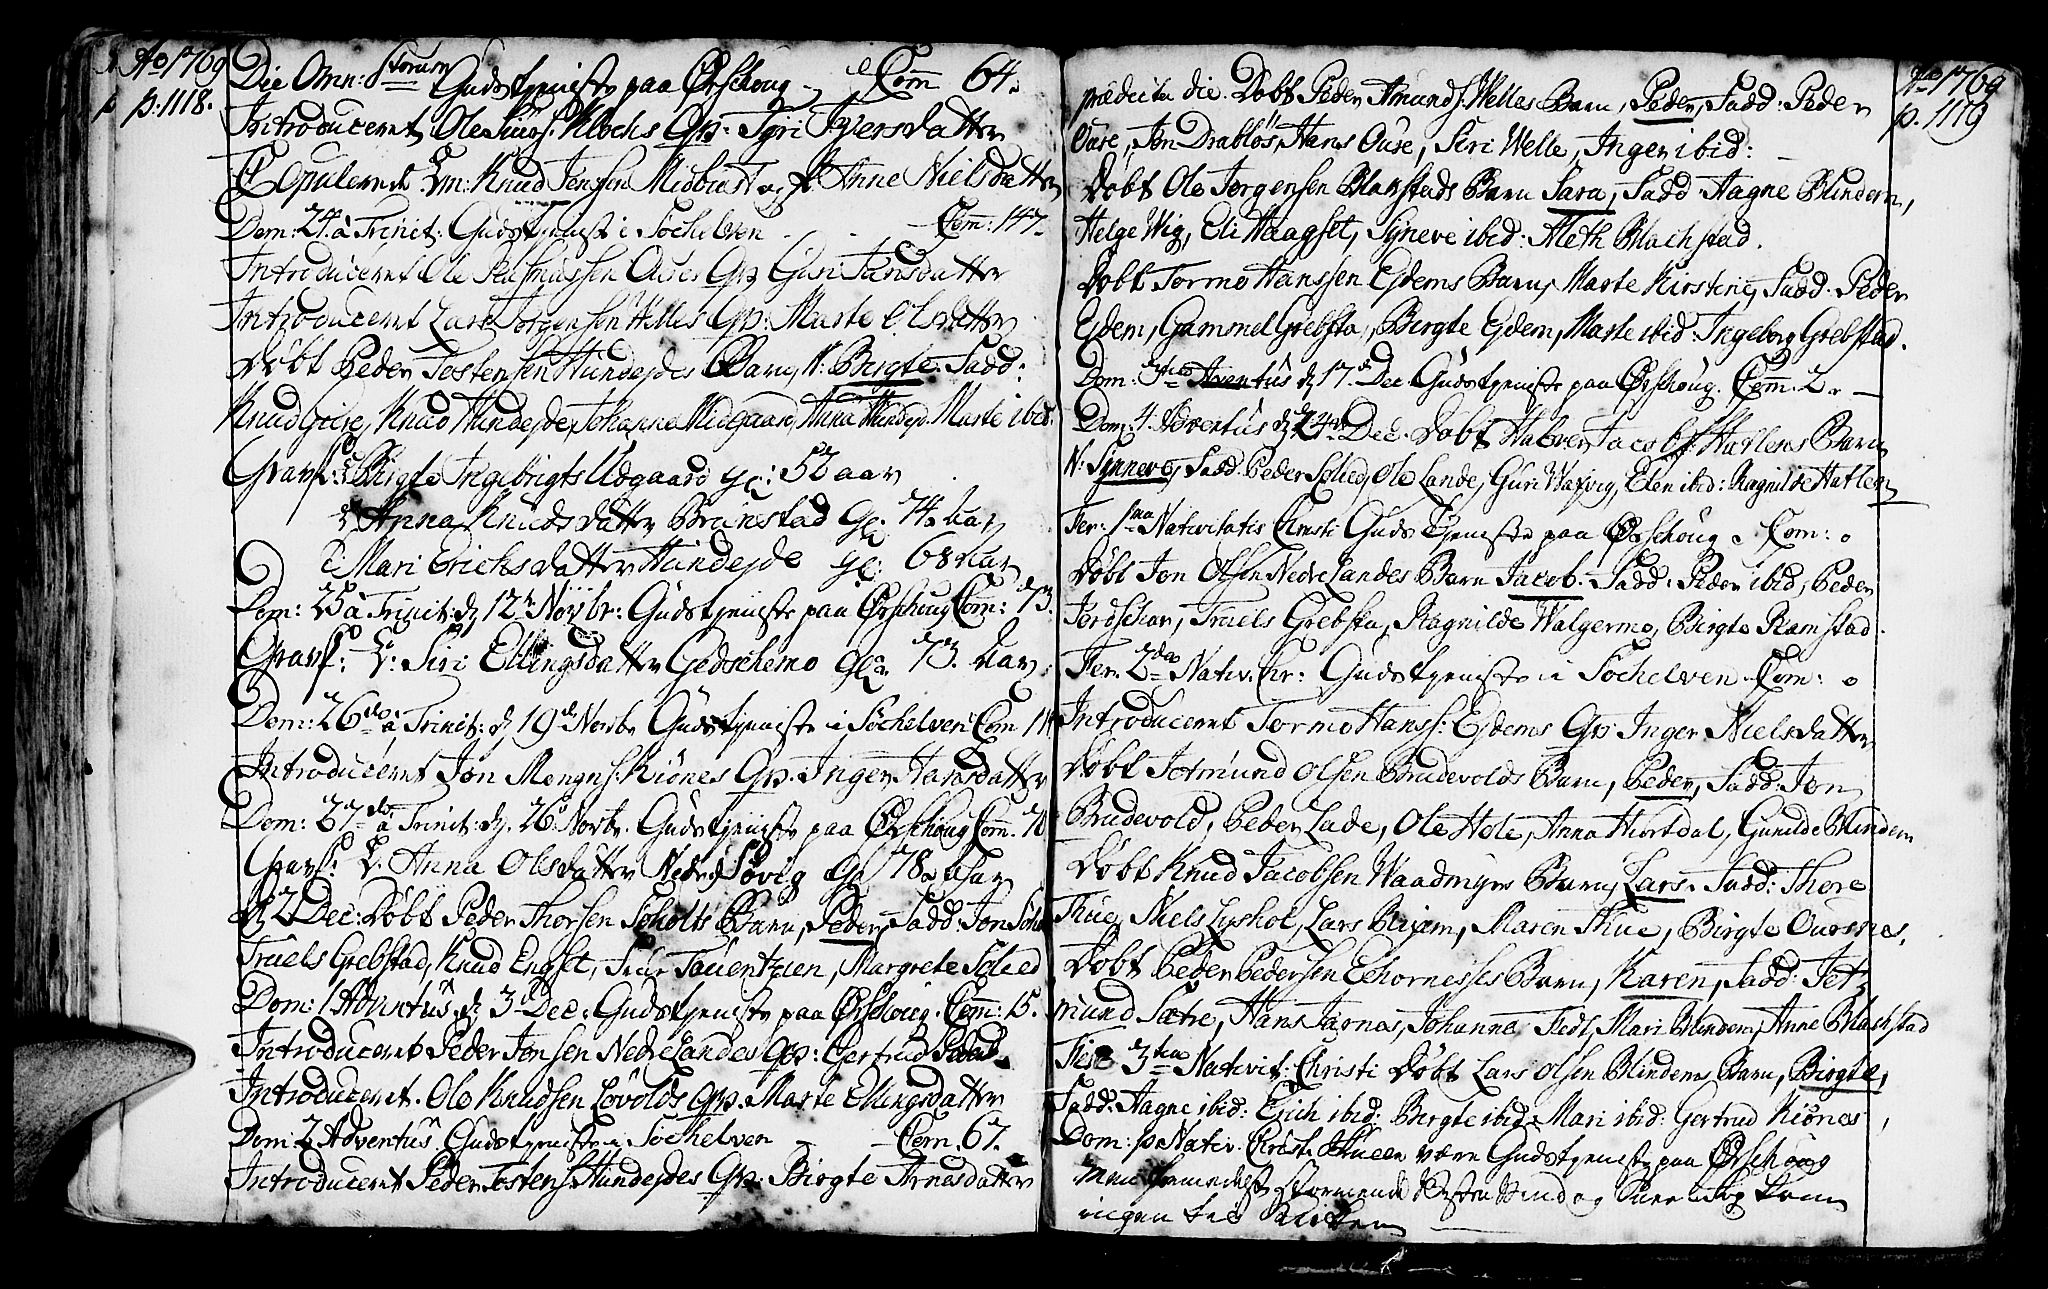 Ao 1769
p. 1118.
Die Omn: Storum Gudstjeniste paa Ørschoug - Com 64.
Introduceret Ole Siurs: Klochs Qv: Syri Iversdatter
Copuleret Knud Jenssen Midbust og Anne Nielsdatter
Dom: 24 à Trinit: Gudstjenist i Søchelven - - Com: 147.
Introduceret Ole Rasmussen Oures Qv Guri Jansdatter
Introduceret Lars Jørgensen Welles Qv: Marte Olsdatter
Døbt Peder Tostensen Hundejdes Barn, N: Birgte. Fadd:
Knud Giære, Knud Hundejde, Johanna Midgaard, Anna Hundejd. Marte ibid:
Gravf: Birgte Ingebrigts Udgaard gl: 52 aar
Anna Knudsdatter Brunstad gl. 74. aar
Mari Erichsdatter Hundejde gl: 68 aar
Dom: 25 à Trinit: d. 12te Novbr: Gudstjeniste paa Ørschoug Com: 73.
Gravf: Siri Ellingsdatter Gedschemo gl. 73. aar
Dom: 26 à Trinit: d. 19de Novbr Gudstjeniste i Søchelven Com 114
Introduceret Jon Mengns: Kiønes Qv. Inger Hansdatter
Dom: 27 à Trinit: d. 26 Novbr. Gudstjeniste paa Ørschoug Com. 70
Gravf: Anna Olsdatter Nedre Søvig gl 78. aar
d. 2 Dec: Døbt Peder Thorsen Søholts Barn, Peder, Fadd: Jon
Truels Grebstad, Knud Engset, Siur Tauentzien, Margrete Solied
Dom: 1 Adventus d. 3 Dec: Gudstjeniste paa Ørschoug. Com: 15.
Introduceret Peder Jonsen Nedre Landes Qv: Gertrud
Introduceret. Ole Knudsen Løvolds Qv. Marte Ellingsdatter
Dom: 2 Adventus Gudstjeniste i Søchelven - - Com. 67.
Introduceret Peder Tostens: Hundejdes Qv: Birgte Arnesdatter
Ao 1769
p. 1119
prædicta die. Døbt Peder Amunds: Welles Barn, Peder, Fadd: Peder
Oure, Jon Drabløs, Hans Oure, Siri Welle, Inger ibid: -
Døbt Ole Jørgensen Blakstads Barn Sara, Fadd Aagne Blindem,
Helge Wig, Eli Waagset, Syneve ibid: Meth Blachstad.
Døbt Tormo Hanssen Ejdems Barn, Marte Kirstine, Fadd. Peder
Ejdem, Gammel Grebsta, Birgte Ejdem, Marte ibid: Ingeborg Grebstad.
Dom: 3tio Aventus d. 17de Dec. Gudstjeniste paa Ørschoug. Com. 2. -
Dom: 4. Adventus d. 24de Dec. Døbt Halver Jacobs: Hatlems Barn
N: Synneve, Fadd. Peder Solied, Ole Lande, Guri Waxvig, Elen ibid: Ragnilde Hatlem
Fer: 1ma Nativitatis Christi Gudstjeniste paa Ørschoug. Com: 0
Døbt Jon Olsen Nedre Landes Barn Jacob. Fadd: Peder ibid, Peder
Jordschar, Truels Grebsta, Ragnilde Walgermo, Birgte Ramstad.
Fer. 2da Nativ. Chr: Gudstjeniste i Søchelven Com: 0
Introduceret Tormo Hanss: Ejdems Qv: Inger Nielsdatter
Døbt Jetmund Olsen Brudevolds Barn, Peder, Fadd: Jon
Brudevold, Peder Lade, Ole Hole, Anna Hiortdal, Gunilde Blindem
Døbt Knud Jacobsen Waadmyrs Barn, Lars. Fadd: Thore
Thue, Niels Lyshol, Lars Blijem, Maren Thue, Birgte Oursnes.
Døbt Peder Pedersen Echornesses Barn, Karen, Fadd: Jet
mund Sætre, Hans Jarnes, Johanne Fedt, Mari Blindem, Anne Blachstad
Fer 3tia Nativit: Christi Døbt Lars Olsen Blindems Barn, Birgte,
Fadd: Aagne ibid: Erich ibid: Birgte ibid: Mari ibid: Gertrud Kiønes
Dom: p: Nativ. Christi skulle være Gudstjeniste paa Ørschoug
men formedelst Stormende Westen Wind og kom
ingen til Kirken